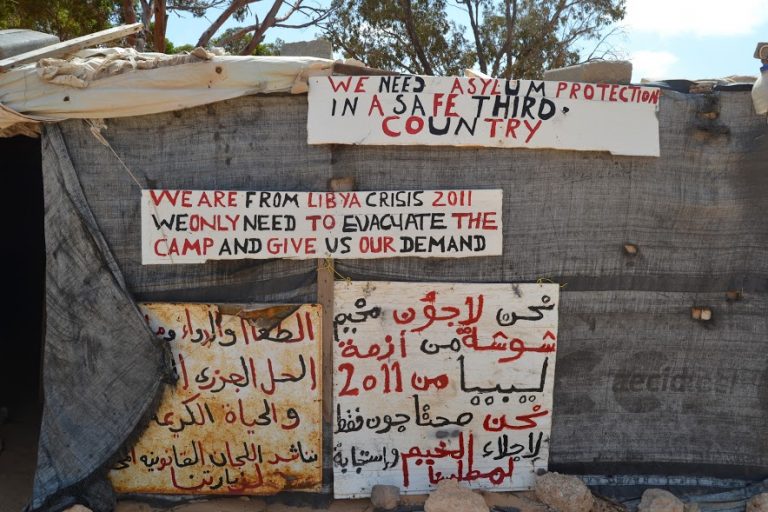 WE NEED ASYLUM PROTECTION
IN A SAFE THIRD.
COUNTRY
WE ARE FROM LIBYA CRISIS 2011
WE ONLY NEED TO EVACUATE THE
CAMP AND GIVE US OUR DEMAND
الطعام والدواء
الحل الجزري
والحياة الكريمة
نناشد اللجان القانونيه
لزيارتنا
نحن لاجؤن مخيم
شوشة من أزمة
ليبيا من 2011
نحن محتاجون فقط
لإجلاء المخيم وإستجابة
لمطلبنا
aecid